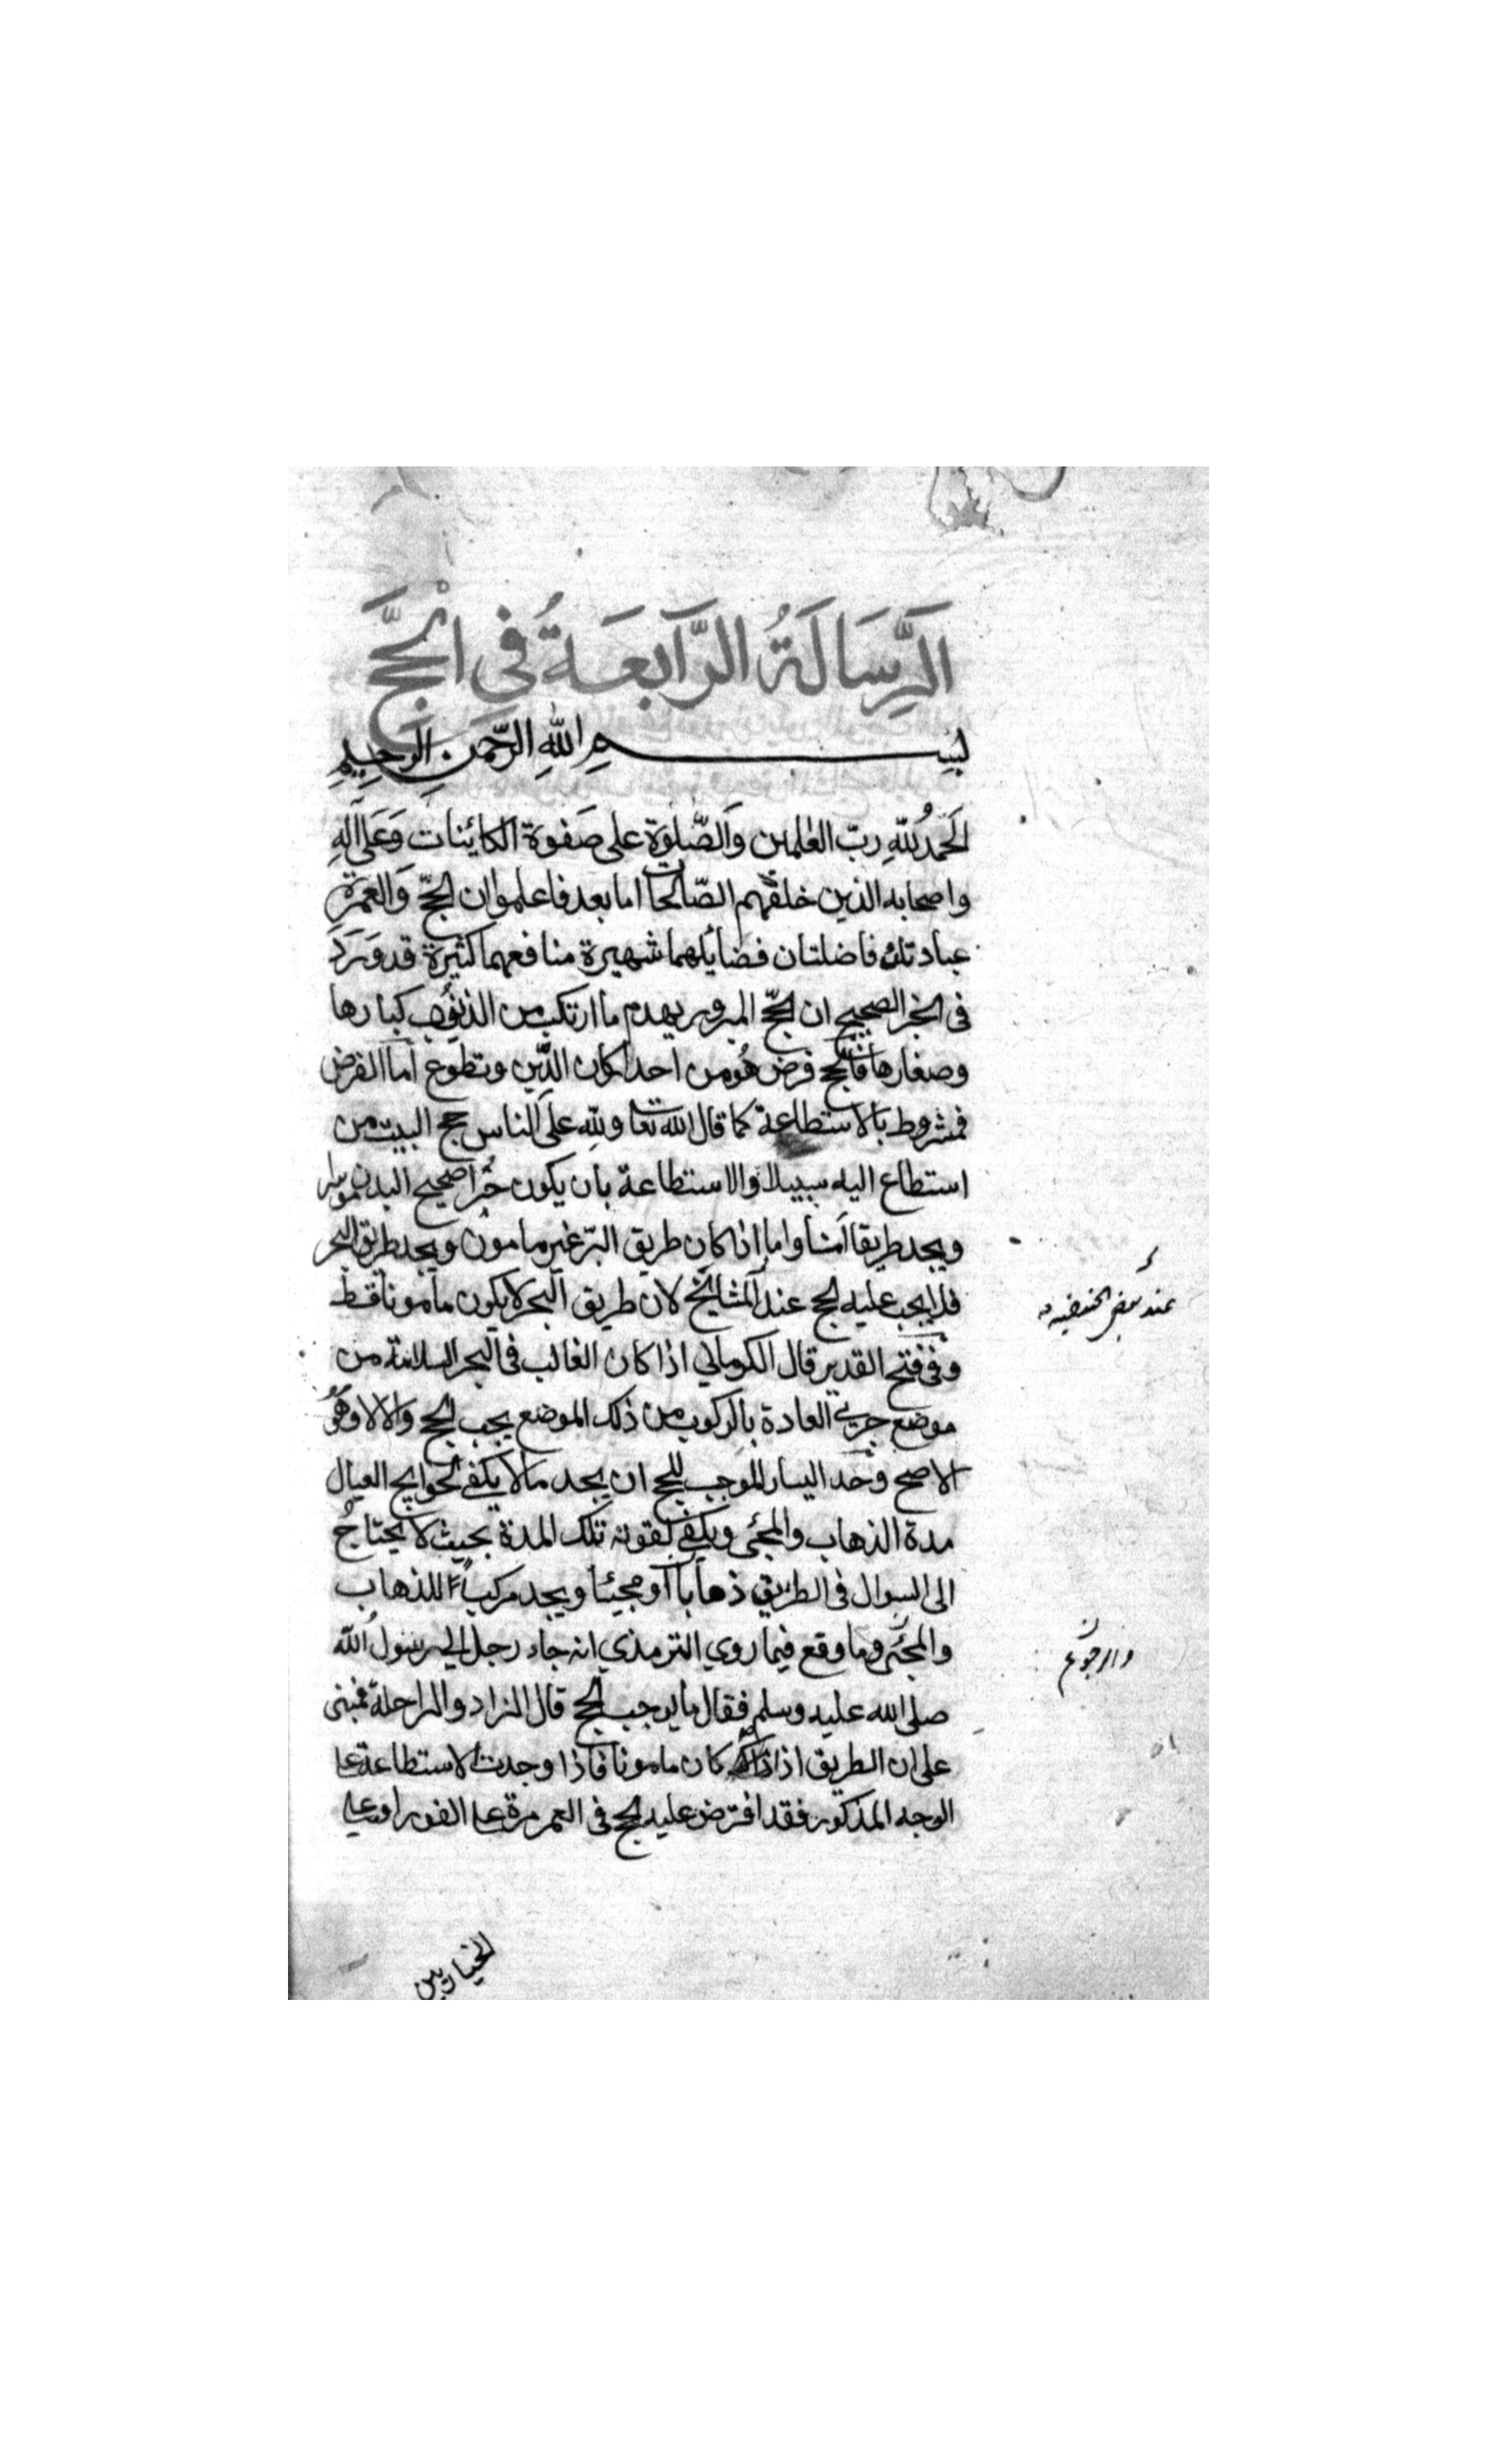 الرِّسَالَةُ الرَّابِعَةُ فِي الْحَجِّ
بسم اللهِ الرَّحمنِ الرَّحِيمِ
الحَمدُ للّهِ ربّ العٰلمين وَالصَّلٰوة على صَفوة الكائنات وَعَلى آلهِ
واصحابه الذين خلقهم الصّالحات اما بعد فاعلموا ان الحجّ وَالعمرة
عبادتان فاضلتان فضايلهما شهيرة منافعهما كثيرة قد وَرَدَ
فى الخبر الصحيح ان الحجّ المبرور يهدم ما ارتكب من الذنوب كبارها
وصغارها فالحج فرض هُو من احد اركان الدّين وتطوع امّا الفرض
فمشروط بالاستطاعة كما قال الله تعا وللهِ على الناس حج البيت من
استطاع اليه سبيلا والاستطاعة بان يكون حُرّا صحيح البدن موسرا
ويجد طريقا آمنا واما اذا كان طريق البرّ غير مامون ويجد طريق البحر
فلا يجب عليه الحج عند المشايخ لان طريق البحر لا يكون مامونا قط
عند بعض الحنفيه
وفى فتح القدير قال الكرمانى اذا كان الغالب فى البحر السلامة من
موضع جرى العادة بالركوب من ذلك الموضع يجب الحج والا لا وهُوَ
الاصح وحَد اليسار الموجب للحج ان يجد مالا يكفى لحوايج العيال
مدة الذهاب والمجئ ويكفى لقوته تلك المدة بحيث لا يحتاجُ
الى السوال فى الطريق ذهابا او مجيئا ويجد مركباً للذهاب
والمجئ وما وقع فيما روي الترمذي انه جاء رجل الى رسولُ اللّه
والرجوع
صلى الله عليه وسلم فقال ما يوجب الحج قال الزاد والراحلة فمبنى
على ان الطريق اذ ذاك كان مامونا فاذا وجدت الاستطاعة على
الوجه المذكور فقد افترض عليه الحج فى العمر مرة على الفور او على